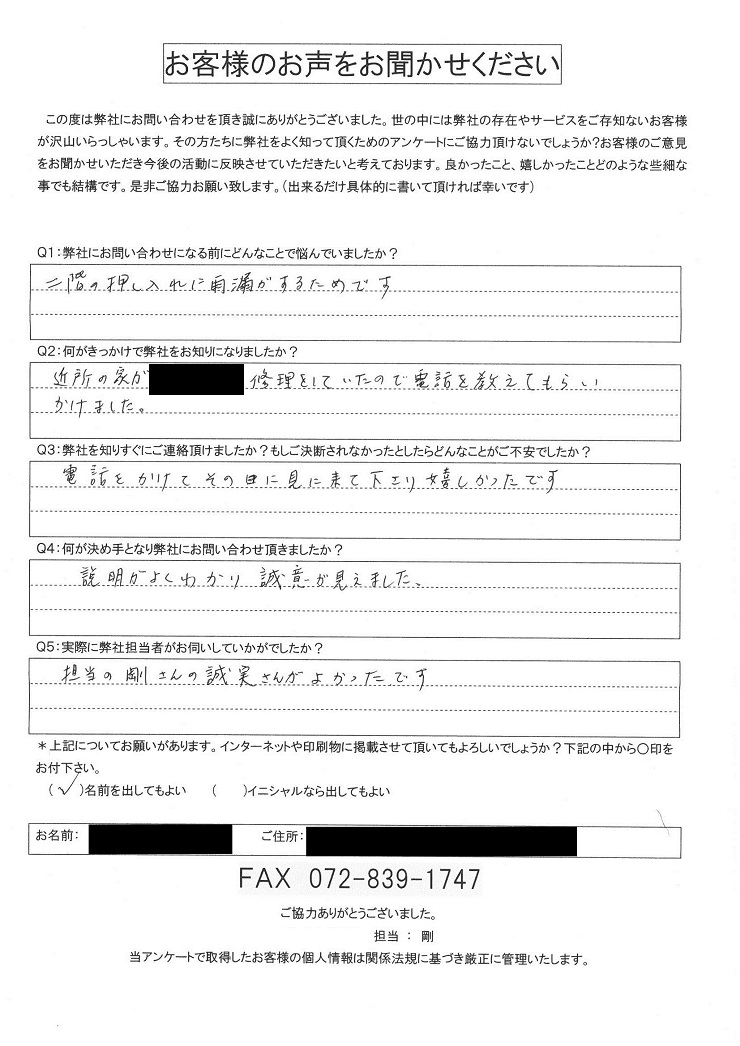 お客様のお声をお聞かせください
この度は弊社にお問い合わせを頂き誠にありがとうございました。世の中には弊社の存在やサービスをご存知ないお客様
が沢山いらっしゃいます。その方たちに弊社をよく知って頂くためのアンケートにご協力頂けないでしょうか?お客様のご意見
をお聞かせいただき今後の活動に反映させていただきたいと考えております。良かったこと、嬉しかったことどのような些細な
事でも結構です。是非ご協力お願い致します。(出来るだけ具体的に書いて頂ければ幸いです)
Q1:弊社にお問い合わせになる前にどんなことで悩んでいましたか?
二階の押し入れに雨漏がするためです
Q2:何がきっかけで弊社をお知りになりましたか?
近所の家が 修理をしていたので電話を教えてもらい
かけました。
Q3:弊社を知りすぐにご連絡頂けましたか?もしご決断されなかったとしたらどんなことがご不安でしたか?
電話をかけてその日に見に来て下さり嬉しかったです
Q4:何が決め手となり弊社にお問い合わせ頂きましたか?
説明がよくわかり 誠意が見えました。
Q5:実際に弊社担当者がお伺いしていかがでしたか?
担当の剛さんの誠実さんがよかったです
*上記についてお願いがあります。インターネットや印刷物に掲載させて頂いてもよろしいでしょうか?下記の中から○印を
お付下さい。
(✓)名前を出してもよい ( )イニシャルなら出してもよい
お名前: ご住所:
FAX 072-839-1747
ご協力ありがとうございました。
担当 : 剛
当アンケートで取得したお客様の個人情報は関係法規に基づき厳正に管理いたします。